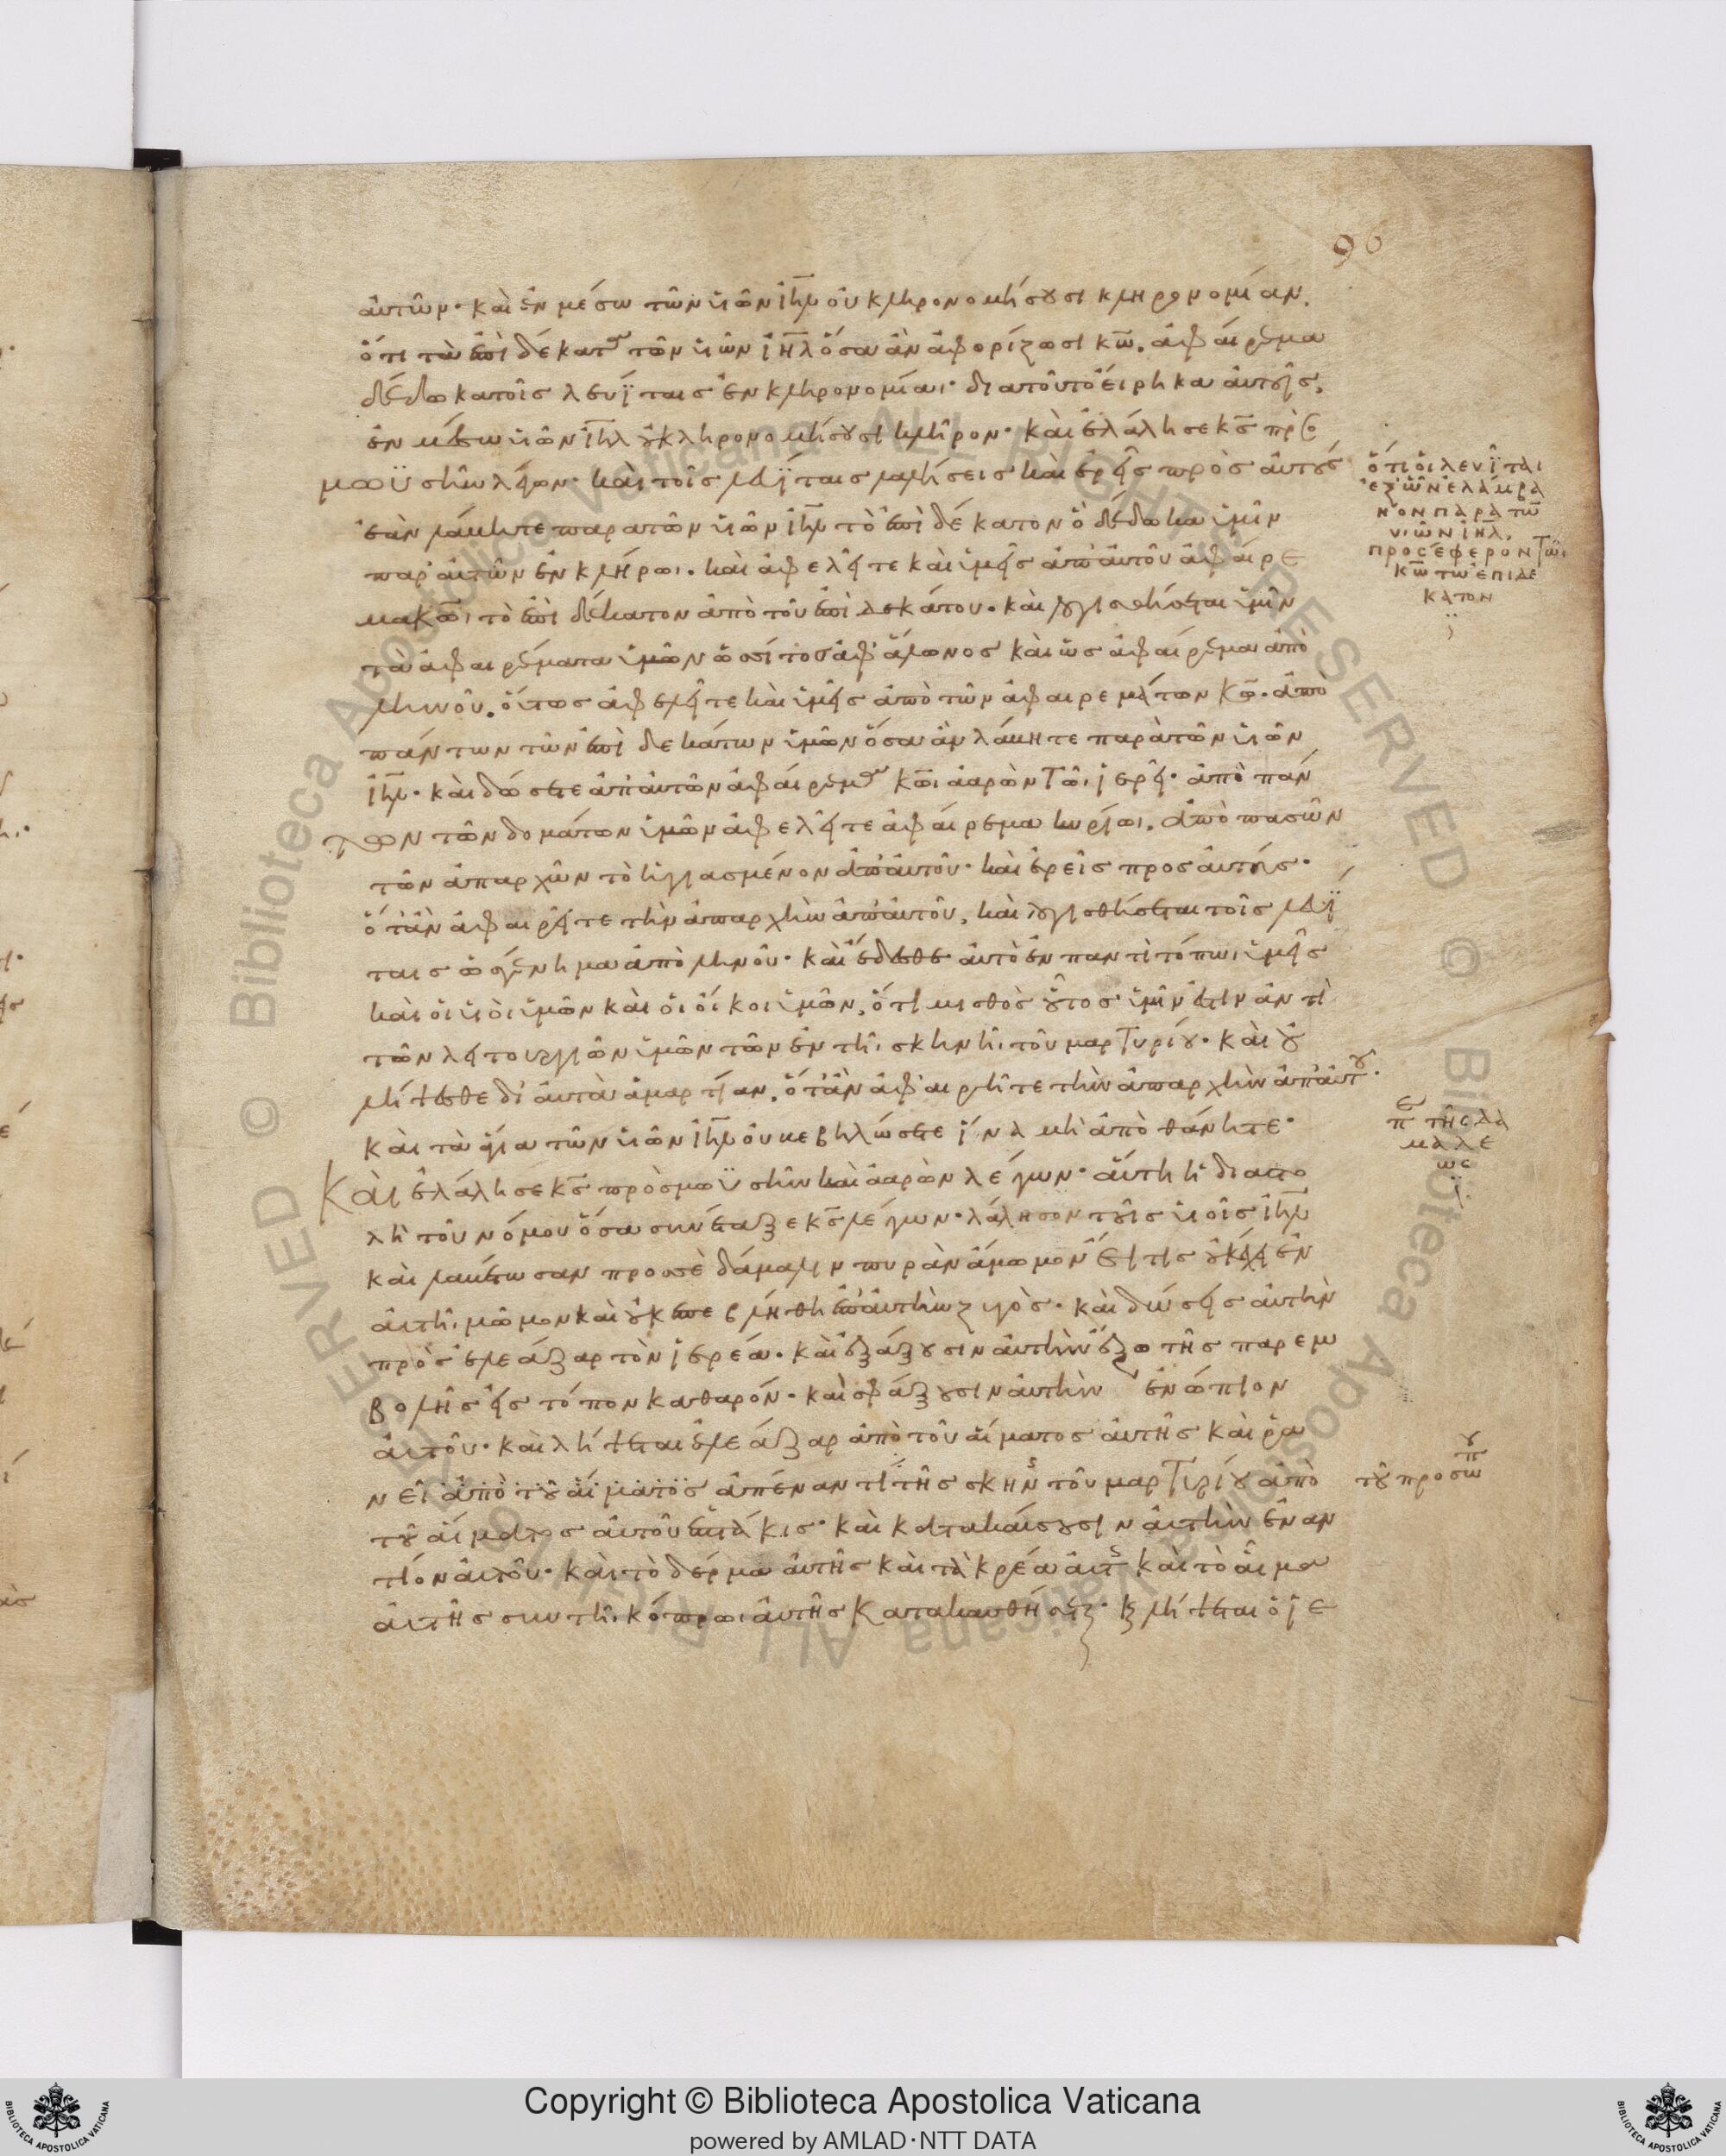 96
αὐτῶν· καὶ ἐν μέσω τῶν υἱῶν ἰη̅λ οὐ κληρονομήσουσι κληρονομίαν.
ὅτι τὰ ἐπιδέκατα τῶν υἱῶν ἰη̅λ ὅσα ἂν ἀφορίζωσι κ̅ω. ἀφαίρεμα
δέδωκα τοῖς λευΐταις ἐν κληρονομίαι· διατοῦτο εἴρηκα αὐτοῖς.
ἐν μέσω υἱῶν ἰη̅λ οὐ κληρονομήσουσι κλῆρον· καὶ ἐλάλησε κ̅ς πρὸ
μωϋσῆν λέγων· καὶ τοῖς λευΐταις λαλήσεις καὶ ἐρεῖς πρὸς αὐτούς
ἐὰν λάβητε παρὰ τῶν υἱῶν ἰη̅λ τὸ ἐπιδέκατον ὃ δέδωκα ὑμῖν
παρ' αὐτῶν ἐν κλήρωι. καὶ ἀφελεῖτε καὶ ὑμεῖς ἀπ' αὐτοῦ ἀφαίρε
μα κ̅ωι τὸ ἐπιδέκατον ἀπὸ τοῦ ἐπιδεκάτου. καὶ λογισθήσεται ὑμῖν
τὰ ἀφαιρέματα ὑμῶν ὡς σίτος ἀφ' ἅλωνος καὶ ὡς ἀφαίρεμα ἀπὸ
ληνοῦ. οὕτως ἀφελεῖτε καὶ ὑμεῖς ἀπὸ τῶν ἀφαιρεμάτων κ̅ω. ἀπὸ
πάντων τῶν ἐπιδεκάτων ὑμῶν ὅσα ἂν λάβητε παρὰ τῶν υἱῶν
ἰη̅λ· καὶ δώσετε ἀπ' αὐτῶν ἀφαίρεμα κ̅ωι ἀαρὼν τῶι ἱερεῖ· ἀπὸ πάν
των τῶν δομάτων ὑμῶν ἀφελεῖτε ἀφαίρεμα κυρίωι. ἀπὸ πασῶν
τῶν ἀπαρχῶν τὸ ἡγιασμένον ἀπ' αὐτοῦ· καὶ ἐρεῖς προς αὐτούς·
ὅταν ἀφαιρεῖτε τὴν ἀπαρχὴν ἀπ' αὐτοῦ, καὶ λογισθήσεται τοῖς λευΐ
ταις ὡς γένημα ἀπὸ ληνοῦ· καὶ ἔδεσθε αὐτὸ ἐν παντὶ τόπωι ὑμεῖς
καὶ οἱ υἱοὶ ὑμῶν καὶ οἱ οἶκοι ὑμῶν, ὅτι μισθὸς οὗτος ὑμῖν ἐστιν ἀντὶ
τῶν λειτουργιῶν ὑμῶν τῶν ἐν τῆι σκηνῆι τοῦ μαρτυρίου· καὶ οὐ
λήψεσθε δι' αὐτὸ ἁμαρτίαν, ὅταν ἀφαιρῆτε τὴν ἀπαρχὴν ἀπ' αὐτοῦ·
καὶ τὰ ἅγια τῶν υἱῶν ἰη̅λ οὐ βεβηλώσετε ἵνα μὴ ἀποθάνητε·
Καὶ ἐλάλησε κ̅ς πρὸς μωϋσῆν καὶ ἀαρὼν λέγων· αὕτη ἡ διαστο
λὴ τοῦ νόμου ὅσα συνέταξε κ̅ς λέγων· λάλησον τοῖς υἱοῖς ἰη̅λ
καὶ λαβέτωσαν προς σὲ δάμαλιν πυρὰν ἄμωμον ἥτις οὐκ ἔχει ἐν
αὐτῆι μῶμον καὶ οὐκ ἐπεβλήθη ἐπ' αὐτὴν ζυγὸς· καὶ δώσεις αὐτὴν
πρὸς ἐλεάζαρ τὸν ἱερέα· καὶ ἐξάξουσιν αὐτὴν ἔξω τῆς παρεμ
βολῆς εἰς τόπον καθαρόν· καὶ σφάξουσιν αὐτὴν ἐνώπιον
αὐτοῦ· καὶ λήψεται ἐλεάζαρ ἀπὸ τοῦ αἵματος αὐτῆς καὶ ῥα
νεῖ ἀπὸ τοῦ αἵματος ἀπέναντι τῆς σκην τοῦ μαρτυρίου ἀπὸ
τοῦ αἵματος αὐτοῦ ἑπτάκις· καὶ κατακαύσουσιν αὐτὴν ἐναν
τίον αὐτοῦ· καὶ τὸ δέρμα αὐτῆς καὶ τὰ κρέα αὐτς καὶ τὸ αἷμα
αὐτῆς συν τῆι κόπρωι αὐτῆς κατακαυθήσετ· κ λήψεται ὁ ἱε
ὅτι οἱ λευῖται
ἐξ ὧν ἐλάμβα
νον παρὰ τῶ̅
υἱῶν ἰη̅λ,
προσέφερον τῶι
κ̅ω τὼ ἐπιδέ
κατον
π τῆς δα
μάλε
ως
τοῦ προσώπου
Copyright © Biblioteca Apostolica Vaticana
powered by AMLAD·NTT DATA